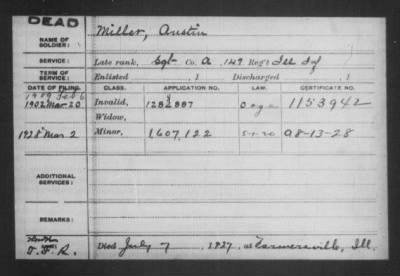 DEAD
NAME OF SOLDIER: Miller, Austin
SERVICE: Late rank, Sgt Co. A, 149 Reg't Ill Inf
TERM OF SERVICE: Enlisted , 1 Discharged , 1
DATE OF FILING. CLASS. APPLICATION NO. LAW. CERTIFICATE NO.
1902 Mar 20 Invalid, 1282887 1153942
Widow,
1928 Mar 2 Minor, 1607,122 5-1-20 A8-13-28
ADDITIONAL SERVICES:
REMARKS:
Died July 7, 1927, at Farmersville, Ill.